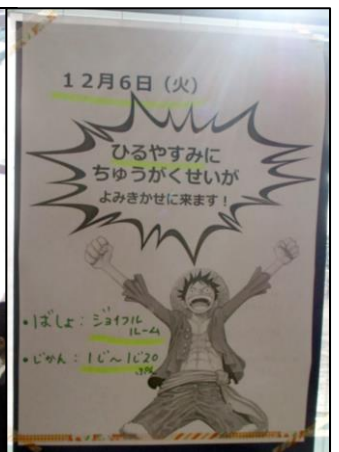 12月6日（火）
ひるやすみに
ちゅうがくせいが
よみきかせに来ます！
・ばしょ：ジョイフル
ルーム
・じかん：1じ〜1じ20
ぷん